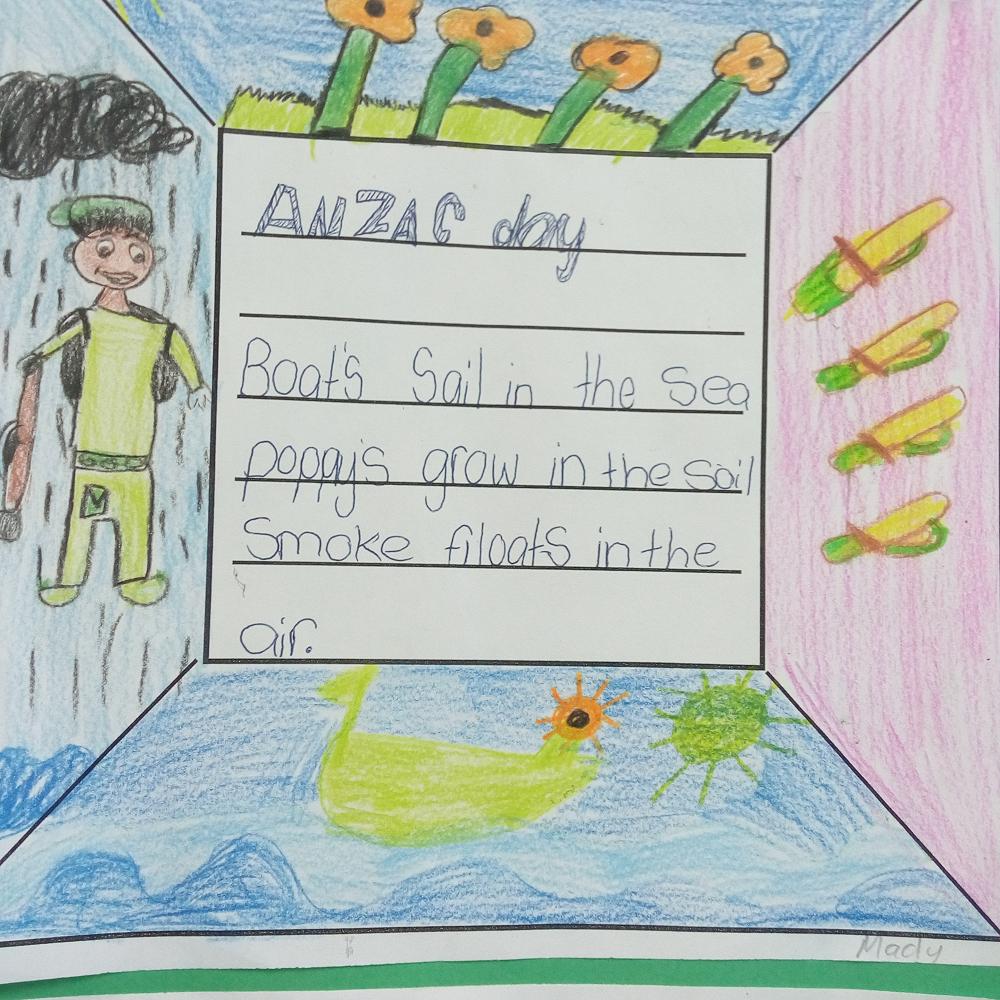 ANZAC day
Boat's Sail in the Sea
poppy's grow in the soil
Smoke filoats in the
air.
Mady